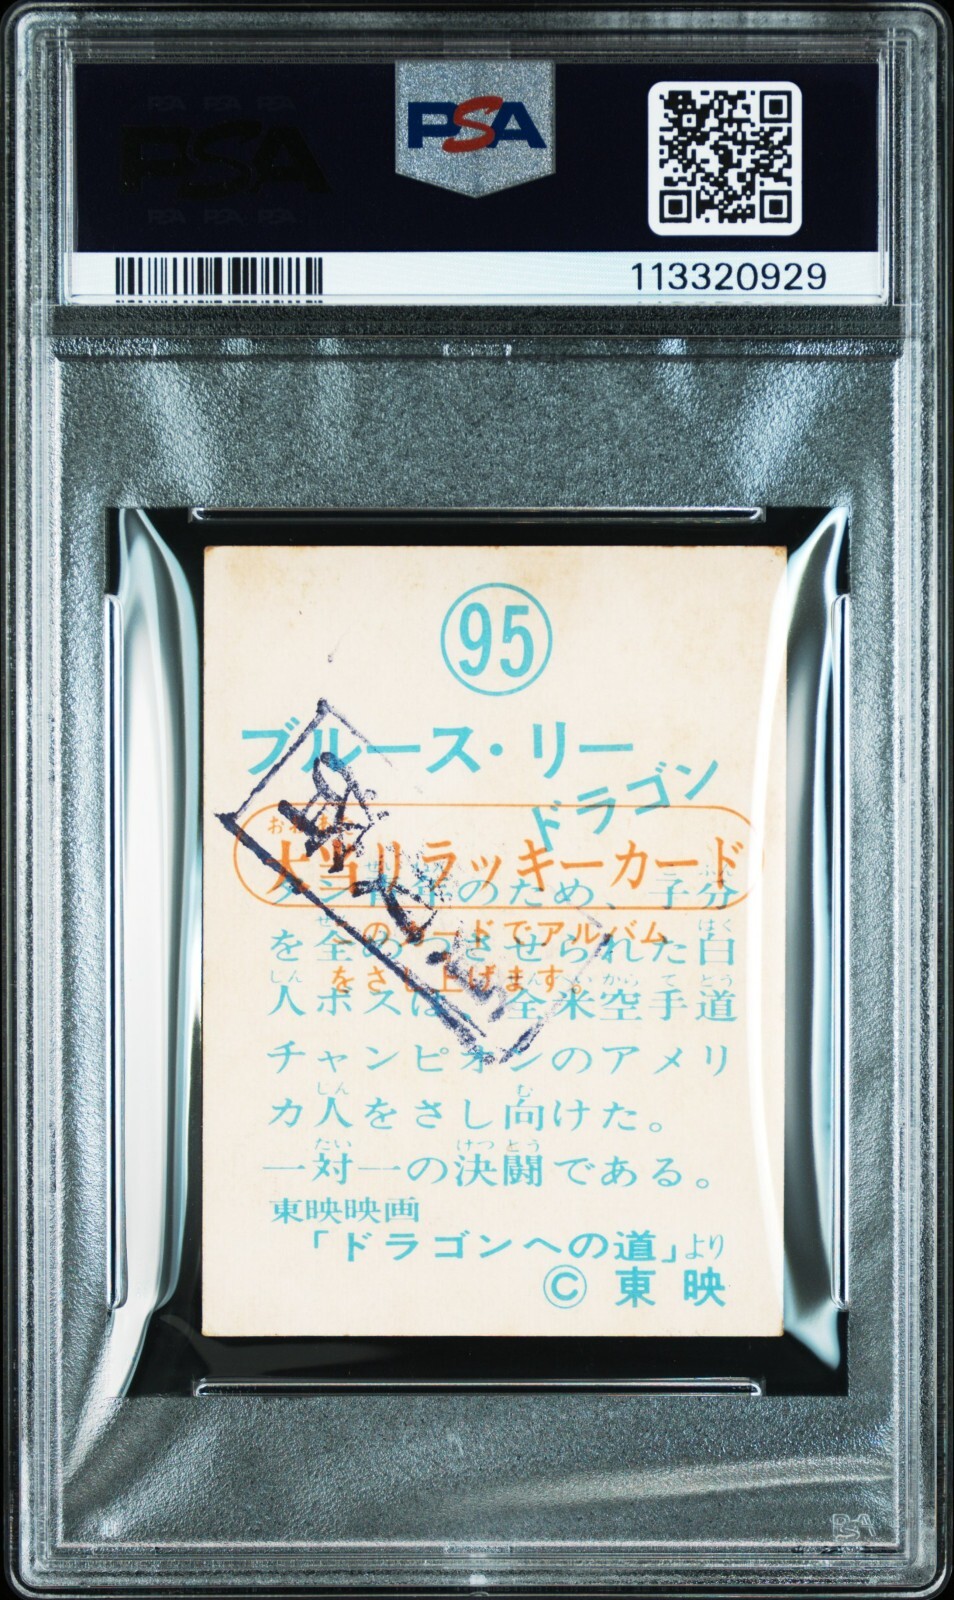 PSA
113320929
95
ブルース・リー
ドラゴン
おおあたり
大当りラッキーカード
タン青年のため、子分
を全めつさせられた白
このカードでアルバム
人ボスは、全米空手道
をさし上げます。
チャンピオンのアメリ
カ人をさし向けた。
一対一の決闘である。
東映映画
「ドラゴンへの道」より
© 東映
PSA